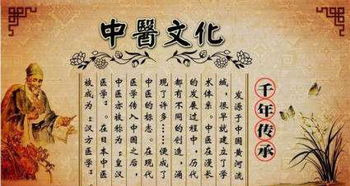 中醫文化
千年传承
发源于中国黄河流
域，很早就建立了学
术体系。中医在漫长
的发展过程中，历代
都有不同的创造，涌
现了许多……便成了
中医的标志。在现代
医学传入中国之后，
中医亦被称为“皇汉
医学”。在日本中医
被成为“汉方医学”